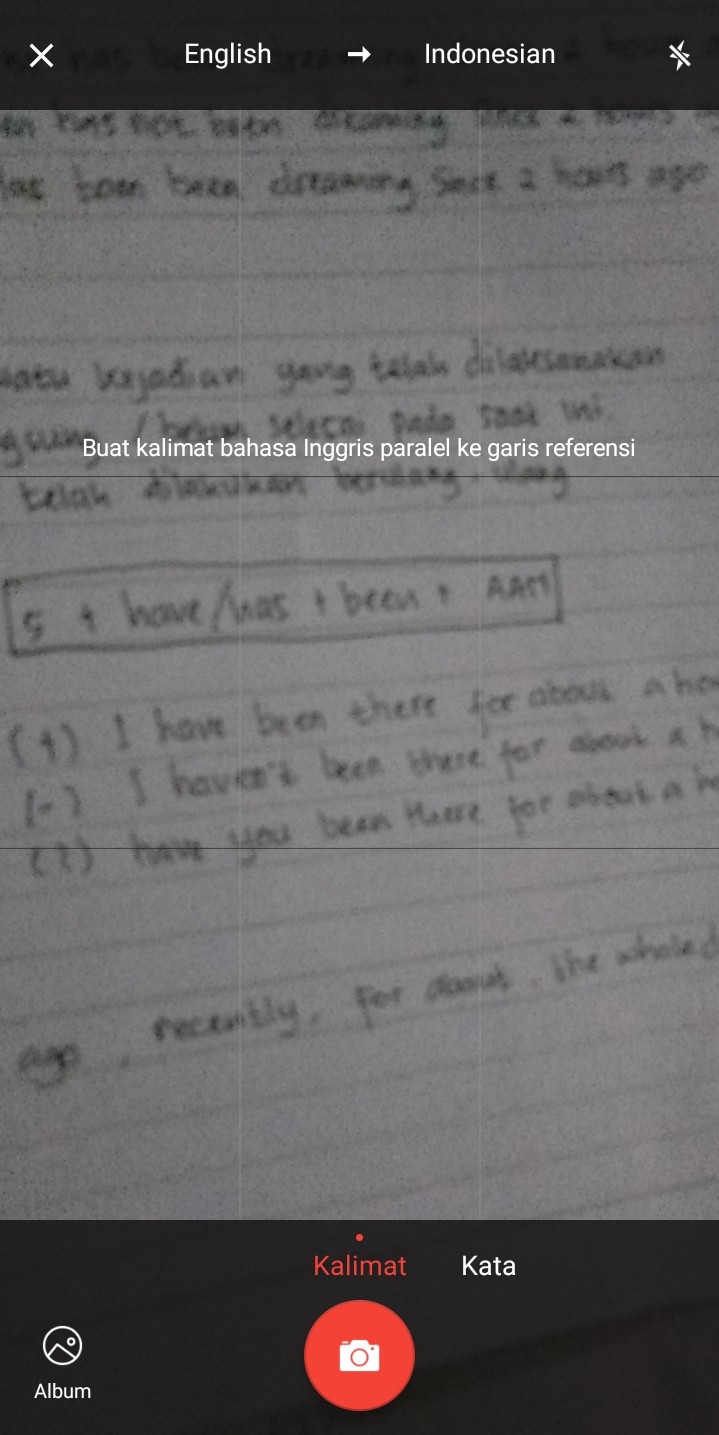 English → Indonesian
been dreaming since 2 hours
been been dreaming since 2 hours ago
kejadian yang telah dilaksanakan
/ belum selesai pada saat ini.
Buat kalimat bahasa Inggris paralel ke garis referensi
telah dilakukan berulang-ulang
S + have/has + been + AAN
(+) I have been there for about a
(-) I haven't been there for about a
(?) have you been there for about a
ago, recently, for about, the whole
Kalimat Kata
Album